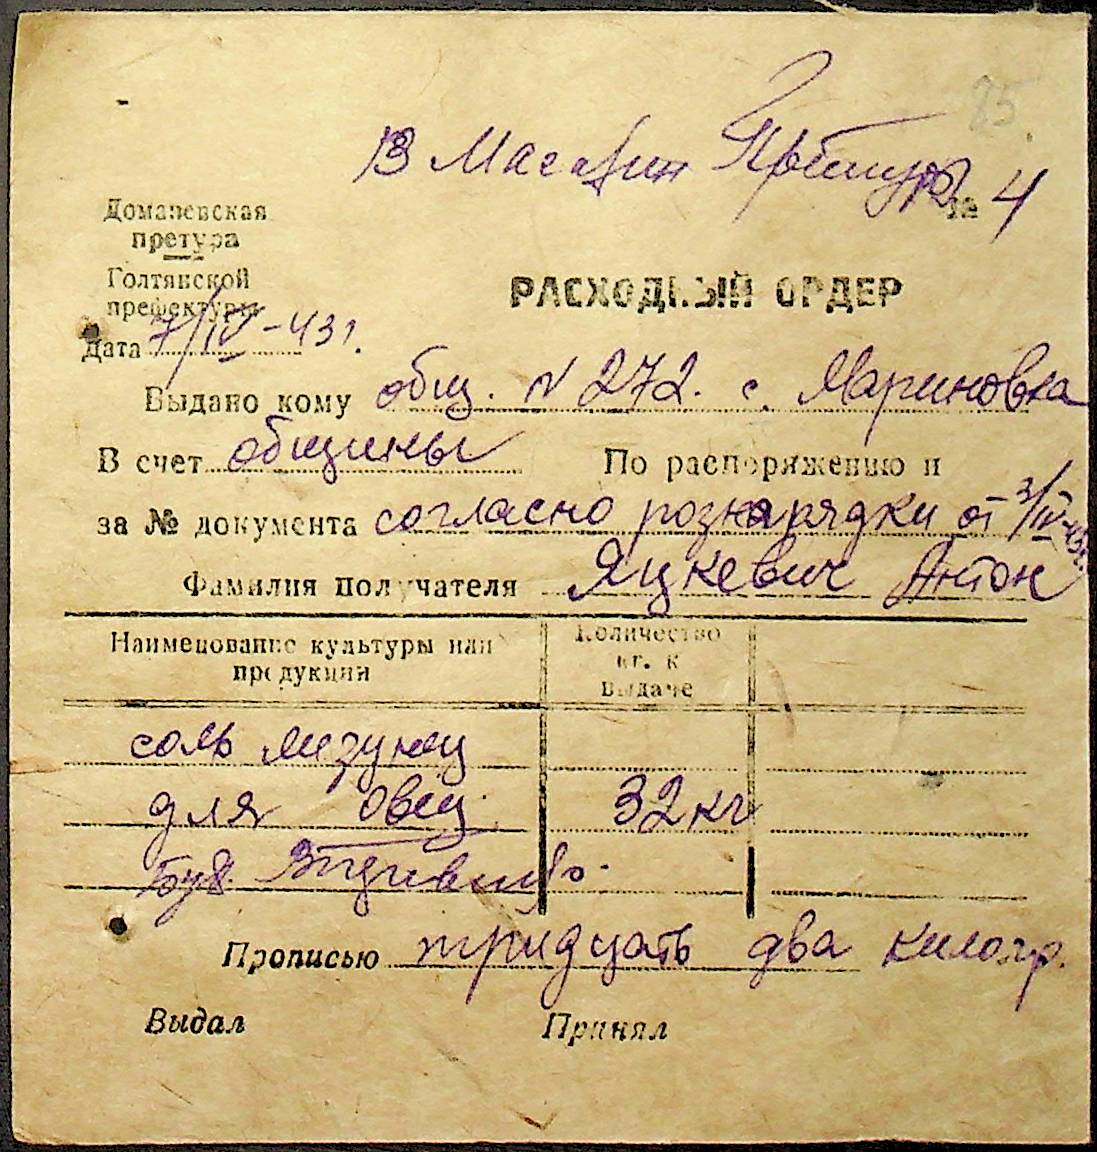 85
В Масазин Претуры
№ 4
Доманевская
претура
Голтянской
префектуры
РАСХОДНЫЙ ОРДЕР
Дата 7/IV-43г.
Выдано кому общ. N 272. с. Мариновка
В счет общины По распоряжению и
за № документа согласно рознарядки от 3/IV-43г.
Фамилия получателя Яцкевич Антон
Наименование культуры или
продукции
Количество
кг. к
выдаче
соль лизунец
для овец. 32 кг
Бух.
Прописью тридцать два килогр.
Выдал Принял